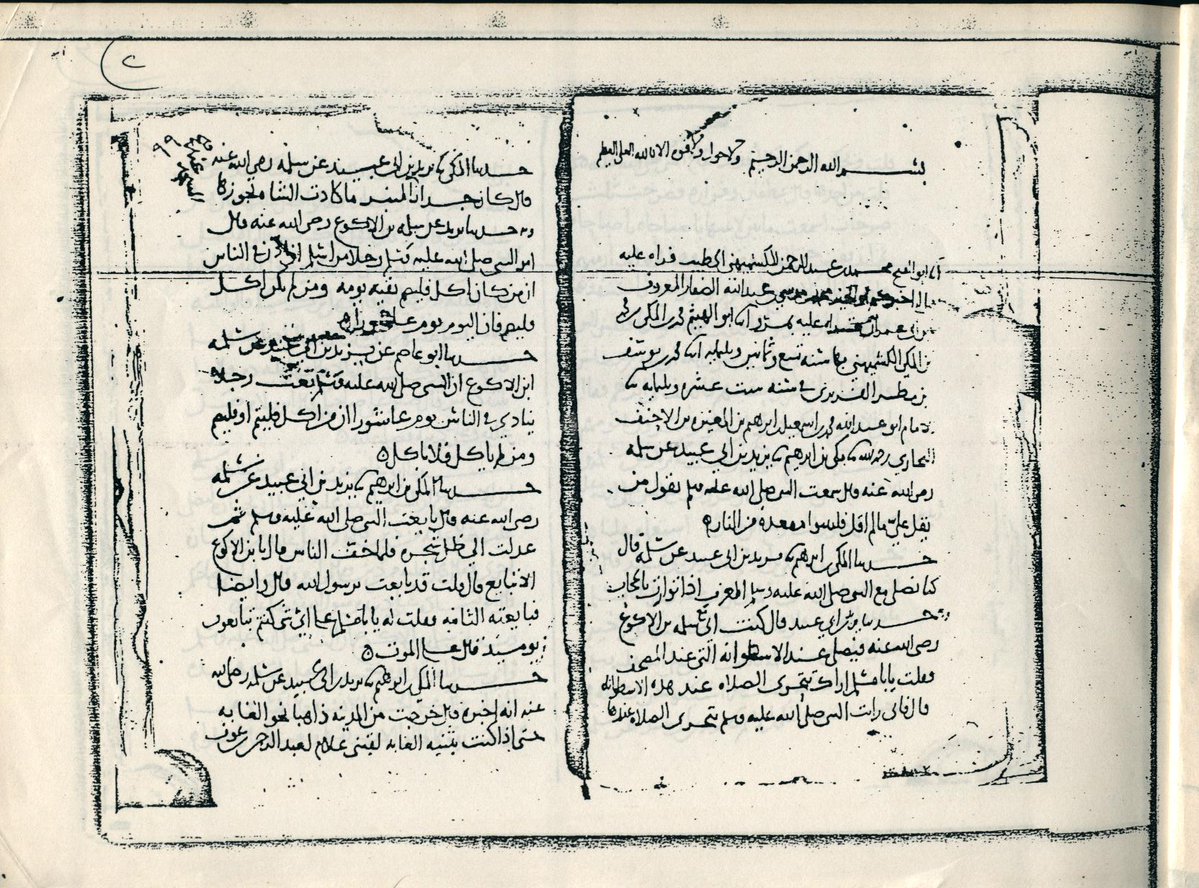 بسم الله الرحمن الرحيم ولا حول ولا قوة الا بالله العلي العظيم
ابو الهيثم محمد بن عبد الرحمن الكشميهني الخطيب قراه عليه
عبد الله الصفار المعروف
عليه ابو الهيثم محمد بن المكي بن
بن المكي الكشميهني بها سنة تسع وثمانين وثلثمايه محمد بن يوسف
بن مطر الفربري في سنه ست عشره وثلثمايه
الامام ابو عبد الله محمد بن اسمعيل بن ابرهيم بن المغيره بن الاحنف
البخاري رحمه الله مكي بن ابرهيم يزيد بن ابي عبيد عن سلمه
رضي الله عنه قال سمعت النبي صلى الله عليه وسلم يقول من
يقل علي ما لم اقل فليتبوا مقعده من النار
حدثنا المكي بن ابرهيم يزيد بن ابي عبيد عن سلمة قال
كنا نصلي مع النبي صلى الله عليه وسلم المغرب اذا توارت بالحجاب
حدثنا يزيد بن ابي عبيد قال كنت اتي مع سلمه بن الاكوع
رضي الله عنه فيصلي عند الاسطوانه التي عند المصحف
فقلت يابا مسلم اراك تتحرى الصلاه عند هذه الاسطوانه
قال فاني رايت النبي صلى الله عليه وسلم يتحرى الصلاه عندها
٢
٩٩
حدثنا المكي يزيد بن ابي عبيد عن سلمه رضي الله عنه
قال كان جدار المنبر ما كادت الشاة تجوزها
حدثنا يزيد عن سلمه بن الاكوع رضي الله عنه قال
امر النبي صلى الله عليه وسلم رجلا من اسلم ان اذن في الناس
ان من كان اكل فليصم بقيه يومه ومن لم يكن اكل
فليصم فان اليوم يوم عاشوراء
حدثنا ابو عاصم عن يزيد بن ابي عبيد عن سلمه
ابن الاكوع ان النبي صلى الله عليه وسلم بعث رجلا
ينادي في الناس يوم عاشورا ان من اكل فليتم او فليصم
ومن لم ياكل فلا ياكل
حدثنا المكي بن ابرهيم يزيد بن ابي عبيد عن سلمه
رضي الله عنه قال بايعت النبي صلى الله عليه وسلم ثم
عدلت الي ظل شجره فلما خف الناس قال يا بن الاكوع
الا تبايع قال قلت قد بايعت يرسول الله قال وايضا
فبايعته الثانيه فقلت له يابا مسلم على اي شي كنتم تبايعون
يوميذ قال على الموت
حدثنا المكي بن ابرهيم يزيد بن ابي عبيد عن سلمه رضي الله
عنه انه اخبره قال خرجت من المدينه ذاهبا نحو الغابه
حتى اذا كنت بثنيه الغابه لقيني غلام لعبد الرحمن بن عوف